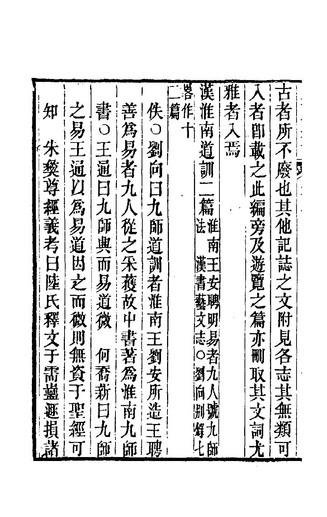 古者所不廢也其他記誌之文附見各志其無類可
入者卽載之此編旁及遊覽之篇亦刪取其文詞尤
雅者入焉
漢淮南道訓二篇 淮南王安聘明易者九人號九師
法 漢書藝文志〇劉向別錄七
畧作十
二篇
佚〇劉向曰九師道訓者淮南王劉安所造王聘
善爲易者九人從之采獲故中書著爲淮南九師
書〇王通曰九師興而易道微 何喬新曰九師
之易王通以爲易道因之而微則無資于聖經可
知 朱彝尊經義考曰陸氏釋文于需蠱遯損諸